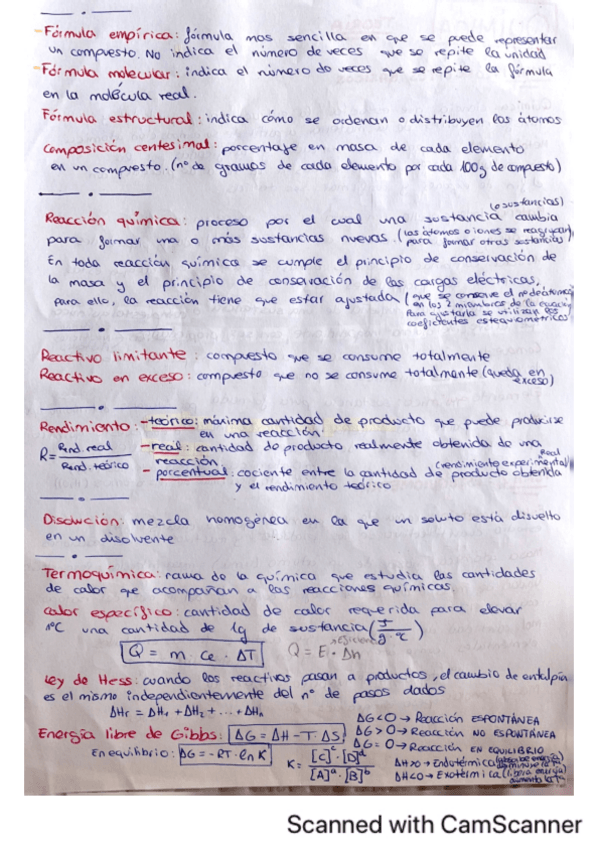 -Fórmula empírica: fórmula mas sencilla en que se puede representar
un compuesto. No indica el número de veces que se repite la unidad
-Fórmula molecular: indica el número de veces que se repite la fórmula
en la molécula real.
Fórmula estructural: indica cómo se ordenan o distribuyen los átomos
Composición centesimal: porcentaje en masa de cada elemento
en un compuesto. (nº de gramos de cada elemento por cada 100g de compuesto)
(o sustancias)
Reacción química: proceso por el cual una sustancia cambia
para formar una o más sustancias nuevas. (los átomos o iones se reagrupan
para formar otras sustancias)
En toda reacción química se cumple el principio de conservación de
la masa y el principio de conservación de las cargas eléctricas,
para ello, la reacción tiene que estar ajustada (que se conserve el nº de átomos
en los 2 miembros de la ecuación
Para ajustarla se utilizan los
coeficientes estequiométricos)
Reactivo limitante: compuesto que se consume totalmente
Reactivo en exceso: compuesto que no se consume totalmente (queda en
exceso)
Rendimiento: -teórico: máxima cantidad de producto que puede producirse
en una reacción.
R = Rend. real / Rend. teórico
-real: cantidad de producto realmente obtenida de una
reacción
(rendimiento experimental)
- porcentual: cociente entre la cantidad de producto obtenida
Real
y el rendimiento teórico
Disolución: mezcla homogénea en la que un soluto está disuelto
en un disolvente
Termoquímica: rama de la química que estudia las cantidades
de calor que acompañan a las reacciones químicas.
Calor específico: cantidad de calor requerida para elevar
1ºC una cantidad de 1g de sustancia (J / g ºC)
Q = m · Ce · ΔT Q = E · Δh
Ley de Hess: cuando los reactivos pasan a productos, el cambio de entalpía
es el mismo independientemente del nº de pasos dados
ΔHr = ΔH₁ + ΔH₂ + ... + ΔHn
Energía libre de Gibbs: ΔG = ΔH - T · ΔS
ΔG<0 → Reacción ESPONTÁNEA
ΔG>0 → Reacción NO ESPONTÁNEA
ΔG=0 → Reacción EN EQUILIBRIO
En equilibrio: ΔG = -RT · ln K K = [C]ᶜ · [D]ᵈ / [A]ᵃ · [B]ᵇ
ΔH>0 → Endotérmica (absorbe energía)
ΔH<0 → Exotérmica (libera energía)
aumenta la T
Scanned with CamScanner